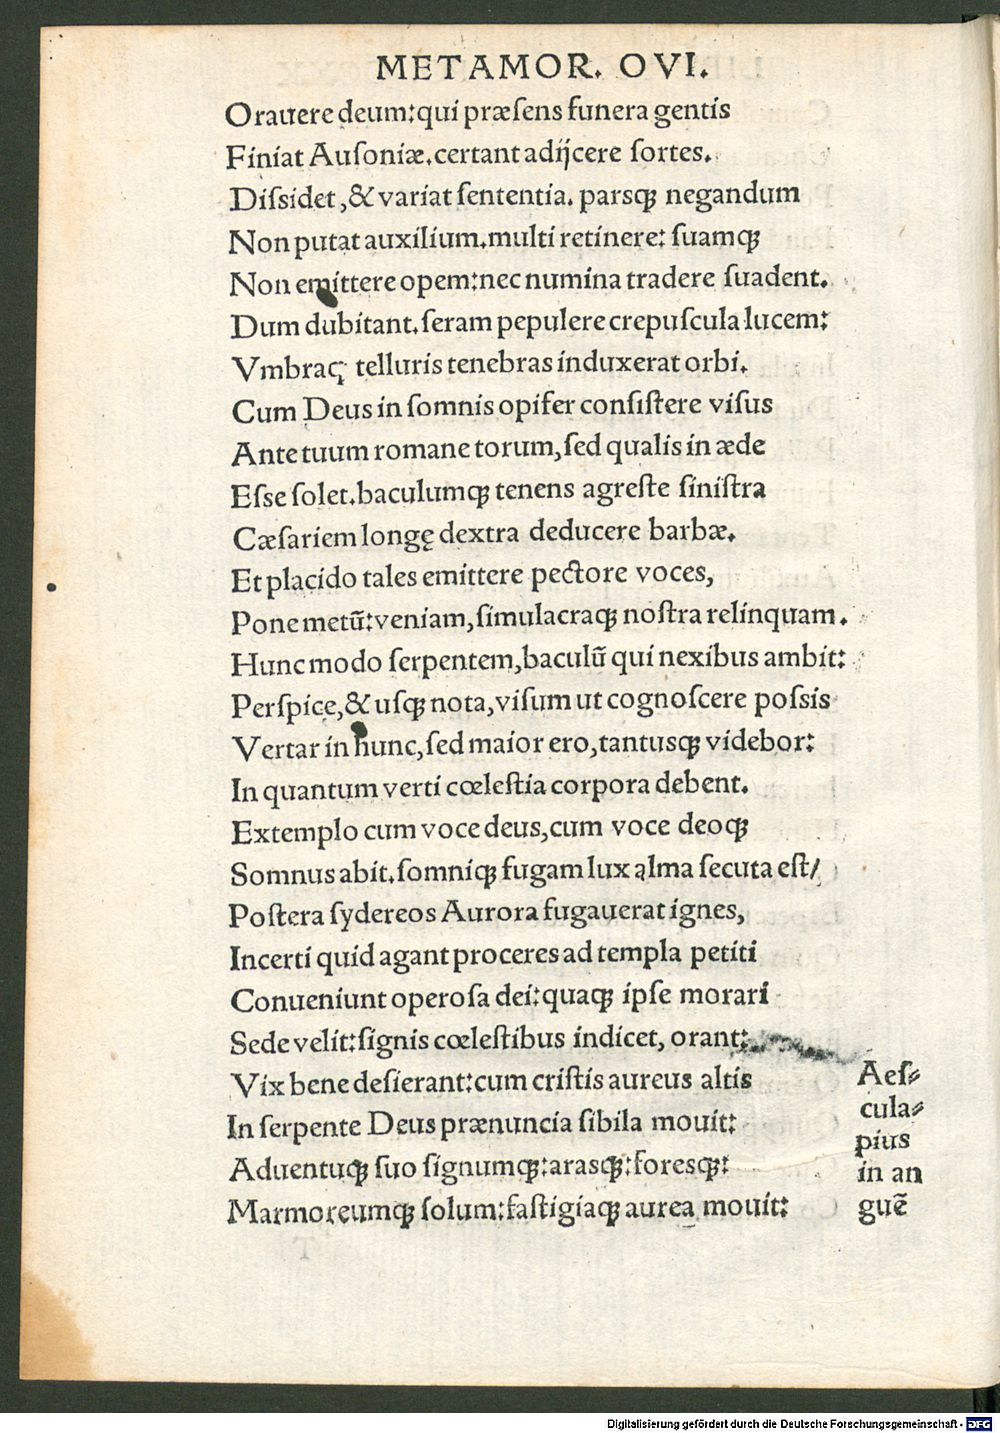 METAMOR. OVI.
Orauere deum:qui præſens funera gentis
Finiat Auſoniæ.certant adijcere ſortes.
Diſsidet,& variat ſententia. parsqꝫ negandum
Non putat auxilium.multi retinere: ſuamqꝫ
Non emittere opem:nec numina tradere ſuadent.
Dum dubitant.ſeram pepulere crepuſcula lucem:
Vmbraqꝫ telluris tenebras induxerat orbi.
Cum Deus in ſomnis opifer conſiſtere viſus
Ante tuum romane torum,ſed qualis in æde
Eſſe ſolet.baculumqꝫ tenens agreſte ſiniſtra
Cæſariem longę dextra deducere barbæ.
Et placido tales emittere pectore voces,
Pone metũ:veniam,ſimulacraqꝫ noſtra relinquam.
Hunc modo ſerpentem,baculũ qui nexibus ambit:
Perſpice,& uſqꝫ nota,viſum ut cognoſcere poſsis
Vertar in hunc,ſed maior ero,tantusqꝫ videbor:
In quantum verti cœleſtia corpora debent.
Extemplo cum voce deus,cum voce deoqꝫ
Somnus abit.ſomniqꝫ fugam lux alma ſecuta eſt/
Poſtera ſydereos Aurora fugauerat ignes,
Incerti quid agant proceres ad templa petiti
Conueniunt operoſa dei:quaqꝫ ipſe morari
Sede velit:ſignis cœleſtibus indicet, orant:
Vix bene deſierant:cum criſtis aureus altis
In ſerpente Deus prænuncia ſibila mouit:
Aduentuqꝫ ſuo ſignumqꝫ:arasqꝫ:foresqꝫ:
Marmoreumqꝫ ſolum:faſtigiaqꝫ aurea mouit:
Aeſ⸗
cula⸗
pius
in an
guẽ
Digitalisierung gefördert durch die Deutsche Forschungsgemeinschaft - DFG